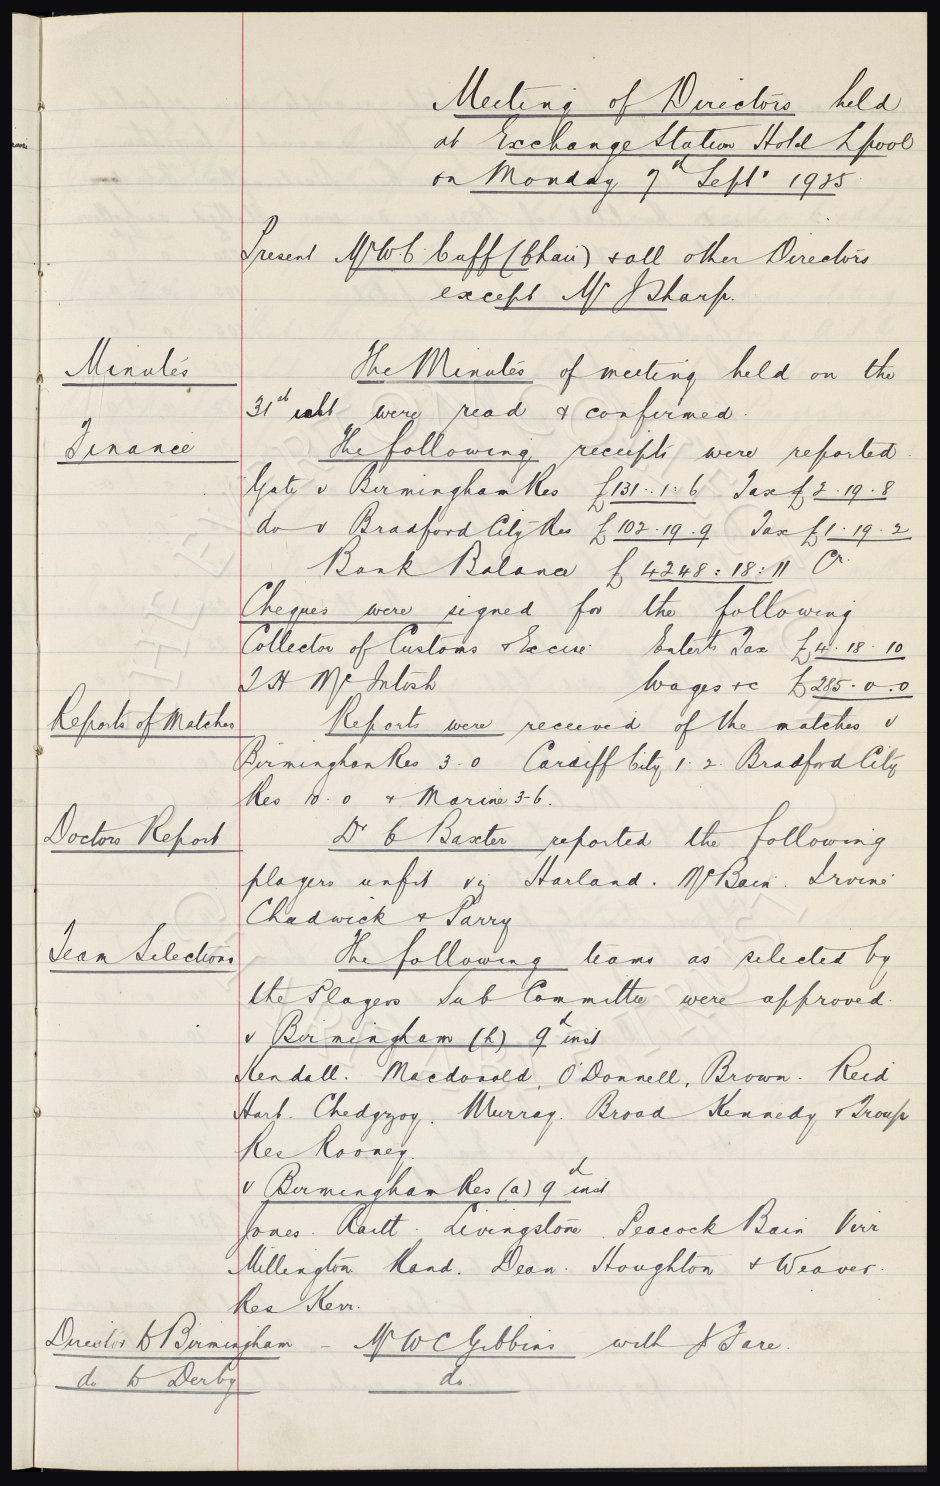 Meeting of Directors held
at Exchange Station Hotel Lpool
on Monday 7th Sept. 1925.
Present Mr W.C. Cuff (Chair) & all other Directors
except Mr J Sharp.
Minutes The Minutes of meeting held on the
31st ult were read & confirmed.
Finance The following receipts were reported.
Gate v Birmingham Res £131..1..6 Tax £2.19.8
do v Bradford City Res £102.19.9 Tax £1.19.2
Bank Balance £4248:18:11 Cr.
Cheques were signed for the following
Collector of Customs & Excise Entert Tax £4.18.10
T H McIntosh Wages &c £285.0.0
Reports of Matches Reports were received of the matches v
Birmingham Res 3-0 Cardiff City 1.2. Bradford City
Res 10.0 & Marine 3-6.
Doctors Report Dr C Baxter reported the following
players unfit viz Harland. McBain. Irvine
Chadwick & Parry
Team Selections The following teams as selected by
the Players Sub Committee were approved.
v Birmingham (h) 9th inst
Kendall. Macdonald, O'Donnell, Brown. Reid
Hart. Chedgzoy. Murray. Broad Kennedy & Troup
Res Rooney.
v Birmingham Res (a) 9th inst
Jones. Raitt. Livingstone. Peacock Bain Virr
Millington Rand. Dean. Houghton & Weaver.
Res Kerr.
Director to Birmingham - Mr W C Gibbins with J Fare.
do to Derby do.